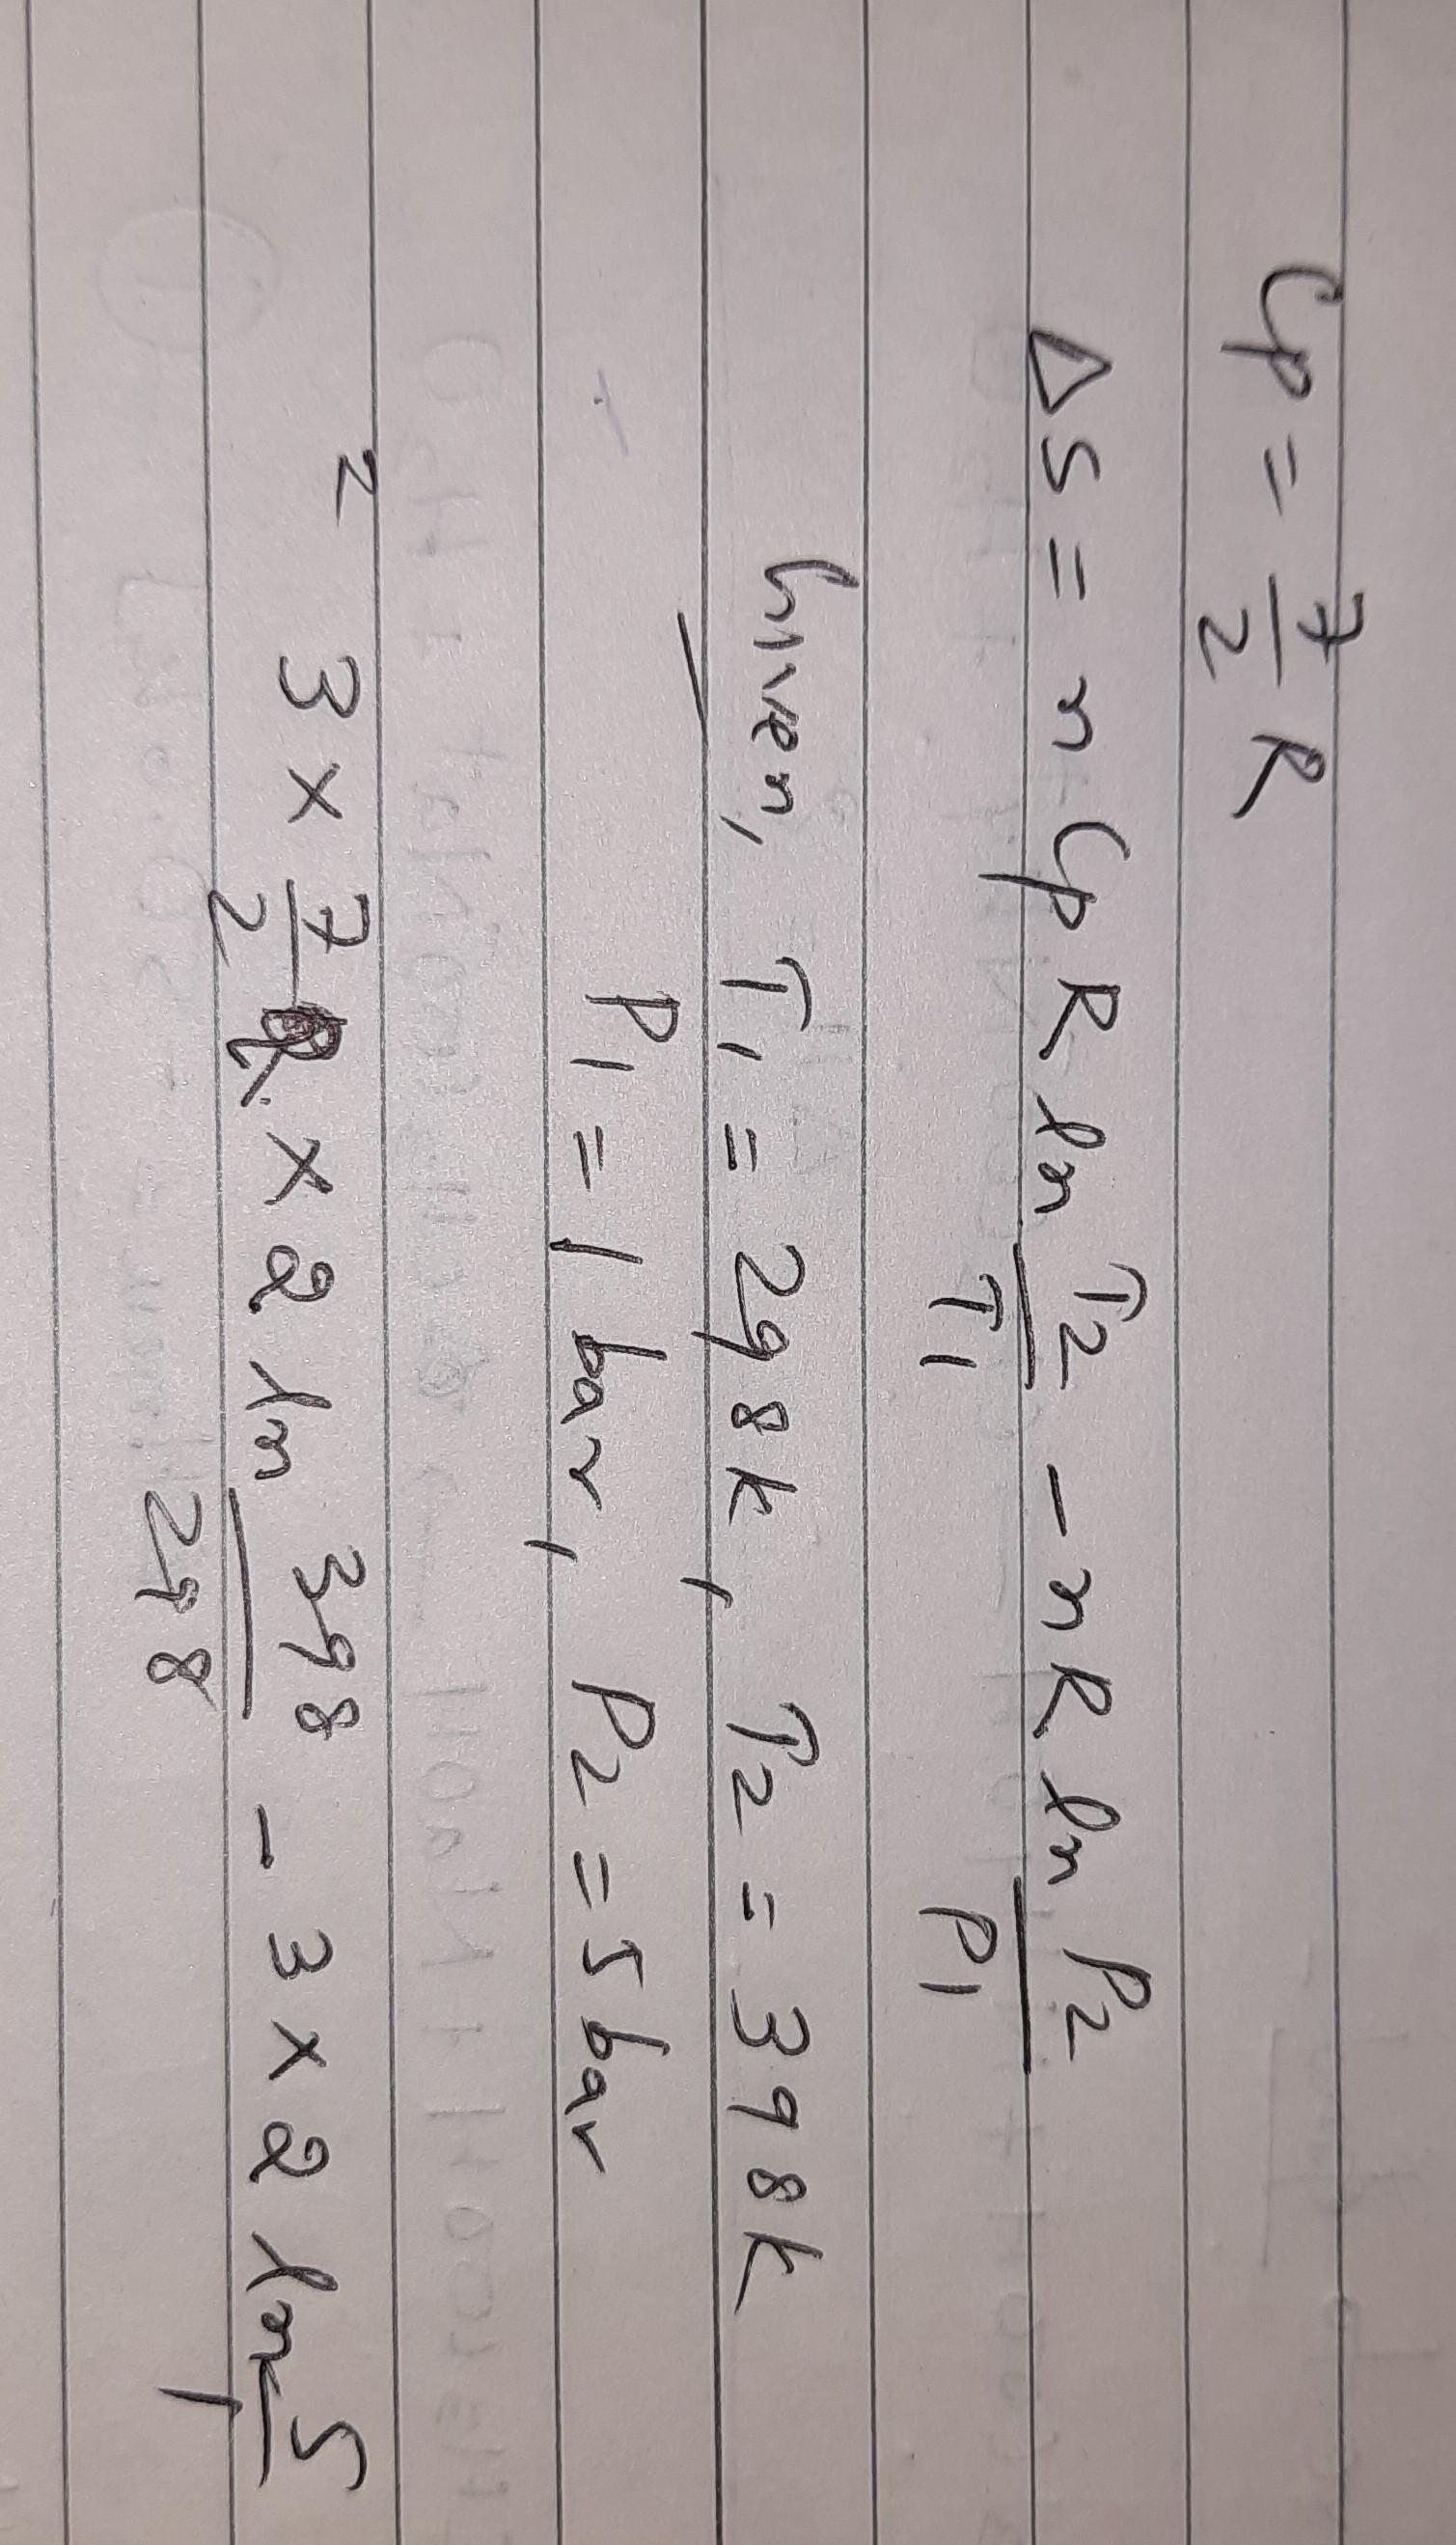 Cp = 7/2 R
ΔS = n Cp R ln T2/T1 - nR ln P2/P1
Given, T1 = 298k, T2 = 398k
P1 = 1 bar, P2 = 5 bar
= 3 × 7/2 × 2 ln 398/298 - 3 × 2 ln 5/1